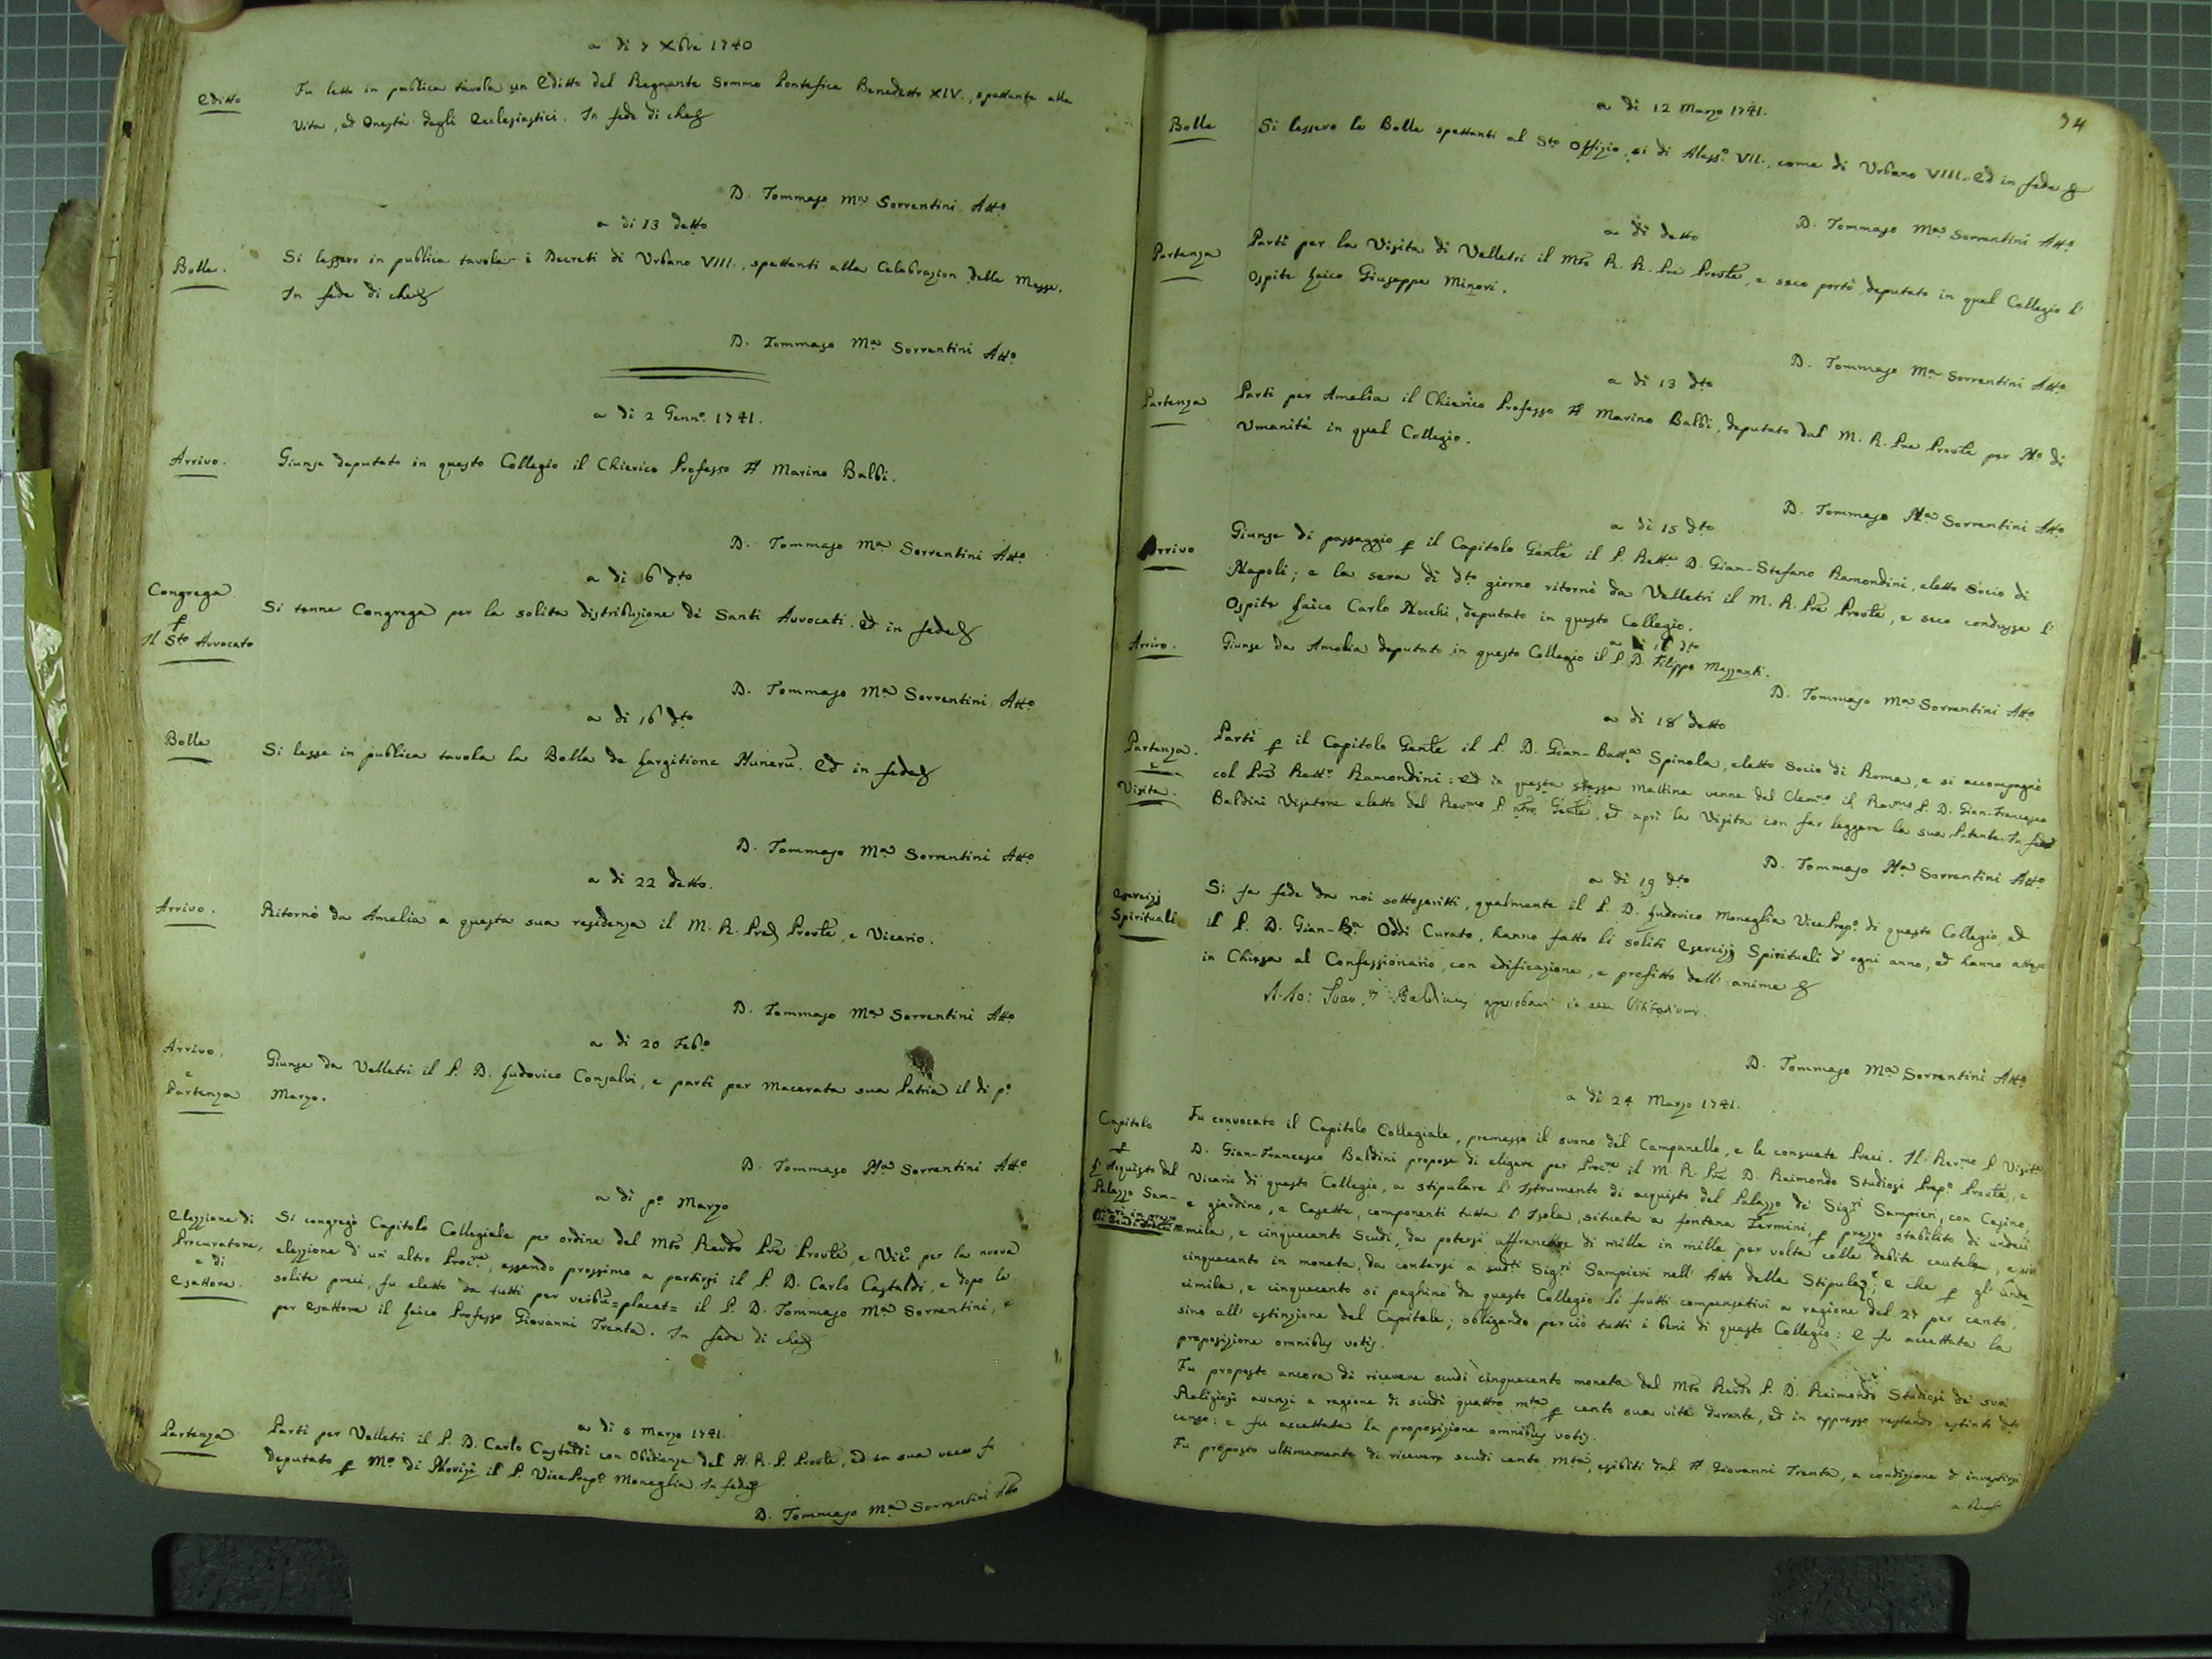 a di 7 Xbre 1740
Editto
Fu letto in publica tavola un Editto del Regnante Sommo Pontefice Benedetto XIV., spettante alla
Vita, ed Onestà degli Ecclesiastici. In fede di che
D. Tommaso Ma. Sorrentini Atto.
a di 13 detto
Bolle.
Si lessero in publica tavola i Decreti di Urbano VIII., spettanti alla Celebrazion delle Messe.
In fede di che
D. Tommaso Ma. Sorrentini Atto.
a di 2 Genno. 1741.
Arrivo.
Giunse deputato in questo Collegio il Chierico Professo Marino Balbi.
D. Tommaso Ma. Sorrentini Atto.
a di 16 dto
Congrega
p
Il Sto Avvocato
Si tenne Congrega per la solita distribuzione de Santi Avvocati. Ed in fede
D. Tommaso Ma. Sorrentini Atto.
a di 16 dto
Bolle
Si lesse in publica tavola la Bolla de Largitione Munerū. Ed in fede
D. Tommaso Ma. Sorrentini Atto.
a di 22 detto.
Arrivo.
Ritornò da Amelia a questa sua residenza il M. R. Pre Provle, e Vicario.
D. Tommaso Ma. Sorrentini Atto.
a di 20 Febo.
Arrivo.
e
Partenza
Giunse da Velletri il P. D. Ludovico Consalvi, e partì per Macerata sua Patria il di po.
Marzo.
D. Tommaso Ma. Sorrentini Atto.
a di po. Marzo
Elezzione di
Procuratore,
e di
Esattore.
Si congregò Capitolo Collegiale per ordine del Mto Revdo Pre Provle, e Vico. per la nuova
elezzione d' un' altro Procre, essendo prossimo a partirsi il P. D. Carlo Castaldi, e dopo le
solite preci, fu eletto da tutti per verbū=placet= il P. D. Tommaso Ma. Sorrentini, e
per Esattore il Laico Professo Giovanni Trenta. In fede di che
a di 5 Marzo 1741.
Partenza
Partì per Velletri il P. D. Carlo Castaldi con Obidienza del M. R. P. Provle, ed in sua vece fu
deputato p Mo. di Novizj il P. VicePrepo. Moneglia. In fede
D. Tommaso Ma. Sorrentini Atto
74
a di 12 Marzo 1741.
Bolle
Si lessero le Bolle spettanti al Sto Offizio, sì di Aless.o VII., come di Urbano VIII. Ed in fede
D. Tommaso Ma. Sorrentini Atto.
a di detto
Partenza
Partì per la Visita di Velletri il Mto R. R. Pre Provle, e seco portò deputato in quel Collegio l'
Ospite Laico Giuseppe Minori.
D. Tommaso Ma. Sorrentini Atto.
a di 13 dto
Partenza
Partì per Amelia il Chierico Professo Marino Balbi, deputato dal M. R. Pre Provle per Mo di
Umanità in quel Collegio.
D. Tommaso Ma. Sorrentini Atto.
a di 15 dto
Arrivo
Giunse di passaggio p il Capitolo Genle il P. Rettr. D. Gian-Stefano Ramondini, eletto Socio di
Napoli; e la sera di dto giorno ritornò da Velletri il M. R. Pre Provle, e seco condusse l'
Ospite Laico Carlo Nocchi, deputato in questo Collegio.
dto
Arrivo.
Giunse da Amelia deputato in questo Collegio il P. D. Filippo Mezzanti.
D. Tommaso Ma. Sorrentini Atto.
a di 18 detto
Partenza.
e
Visita.
Partì p il Capitolo Genle il P. D. Gian-Batta. Spinola, eletto Socio di Roma, e si accompagnò
col Pre Rettr. Ramondini: Ed in questa stessa mattina venne dal Clemno. il Revmo P. D. Gian-Francesco
Baldini Visatore eletto dal Revmo P. ntro Genle, ed aprì la Visita con far leggere la sua Patente. In fede
D. Tommaso Ma. Sorrentini Atto.
a di 19 dto
Esercizj
Spirituali
Si fa fede da noi sottoscritti, qualmente il P. D. Ludovico Moneglia VicePrepo. di questo Collegio, ed
il P. D. Gian-Ba. Oddi Curato, hanno fatto li soliti Esercizj Spirituali d' ogni anno, ed hanno atteso
in Chiesa al Confessionario, con edificazione, e profitto dell' anime
Baldinus approbavi in actu Visitationis.
D. Tommaso Ma. Sorrentini Atto.
a di 24 Marzo 1741.
Capitolo
p
l' Acquisto del
Palazzo Sam-
pieri
Fu convocato il Capitolo Collegiale, premesso il suono del Campanello, e le consuete Preci. Il Revmo P. Visitre
D. Gian-Francesco Baldini propose di eligere per Procre il M. R. Pre D. Raimondo Studiosi Prepo. Provle, e
Vicario di questo Collegio, a stipulare l' Istrumento di acquisto del Palazzo de' Sigri Sampieri, con Casino,
e giardino, e Casette, componenti tutta l' Isola, situata a fontana Termini, p prezzo stabilito di undeci
mila, e cinquecento Scudi, da potersi affrancare di mille in mille per volta colle debite cautele, e
cinquecento in moneta, da contarsi a sudti Sigri Sampieri nell' Atto della Stipulaze; e che p gl' unde-
cimila, e cinquecento si paghino da questo Collegio li frutti compensativi a ragione del 2½ per cento,
sino all' estinzione del Capitale; obligando perciò tutti i beni di questo Collegio: e fu accettata la
proposizione omnibus votis.
Fu proposto ancora di ricevere scudi cinquecento moneta dal Mto Revdo P. D. Raimondo Studiosi de' suoi
Religiosi avanzi a ragione di scudi quattro mta p cento sua vita durante, ed in appresso restando estinti dto
censo: e fu accettata la proposizione omnibus votis.
Fu proposto ultimamente di ricevere scudi cento mta, esibiti dal Giovanni Trenta, a condizione d' investirsi